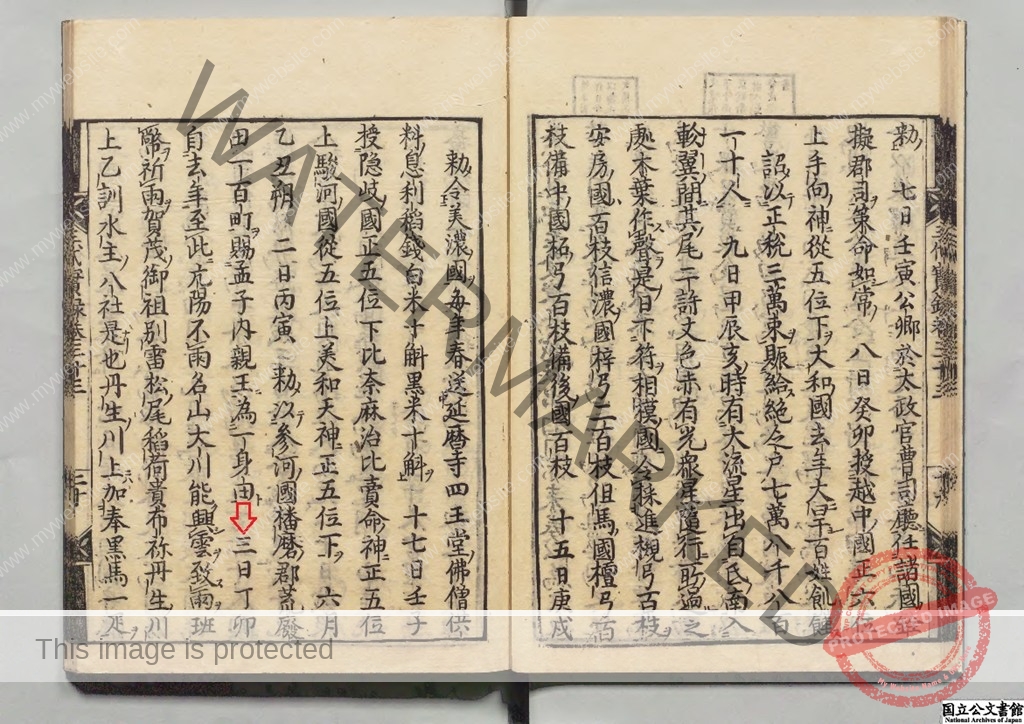 勅 七日壬寅公卿於太政官曹司廳任諸國
擬郡司策命如常 八日癸卯授越中國正六位
上手向神從五位下大和國去年大旱百姓飢饉
詔以正稅三萬束賑給絕乏戶七萬八千八百
一十人 九日甲辰亥時有大流星出自氐南入
軫翼間其尾二許丈色赤有光衆星隨行所過之
處木葉作聲是日下符相摸國令採進槻弓百枝
安房國百枝信濃國梓弓二百枝但馬國檀弓百
枝備中國柘弓百枝備後國百枝 十五日庚戌
勅令美濃國每年春送延曆寺四王堂佛僧供
料息利稻錢白米十斛黑米十斛 十七日壬子
授隱岐國正五位下比奈麻治比賣命神正五位
上駿河國從五位上美和天神正五位下 六月
乙丑朔 二日丙寅勅以參河國播磨郡荒廢
田一百町賜孟子內親王為一身田 三日丁卯
自去年至此亢陽不雨名山大川能興雲致雨班
幣祈雨賀茂御祖別雷松尾稻荷貴布祢丹生川
上乙訓水主八社是也丹生川上加奉黑馬一疋
三代實錄卷三十五
WATERMARKED
This image is protected
PROTECTED IMAGE
www.mywebsite.com
国立公文書館
National Archives of Japan